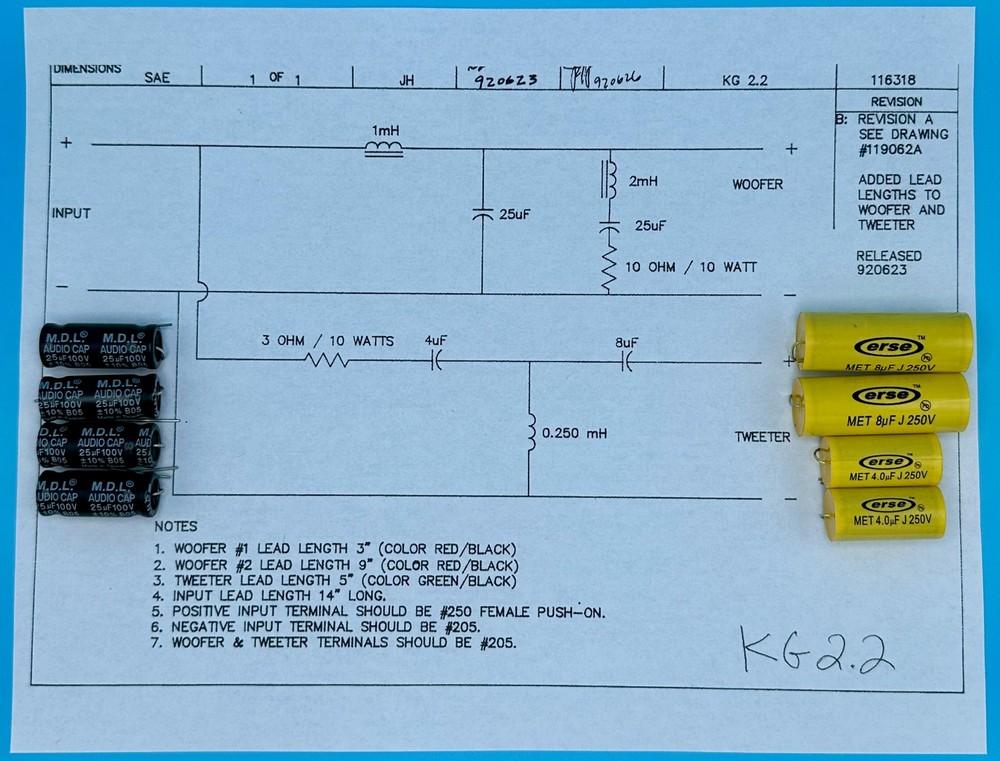 DIMENSIONS
SAE
1 OF 1
JH
920623
920626
KG 2.2
116318
REVISION
B: REVISION A
SEE DRAWING
#119062A
ADDED LEAD
LENGTHS TO
WOOFER AND
TWEETER
RELEASED
920623
+
1mH
+
2mH
WOOFER
INPUT
25uF
25uF
10 OHM / 10 WATT
−
−
3 OHM / 10 WATTS
4uF
8uF
+
0.250 mH
TWEETER
−
M.D.L.® M.D.L.®
AUDIO CAP AUDIO CAP
25µF100V 25µF100V
±10% B05
M.D.L.® M.D.L.®
AUDIO CAP AUDIO CAP
25µF100V 25µF100V
±10% B05 ±10% B05
M.D.L.® M.
AUDIO CAP AUD
F100V 25µF100V 25
±10% B05 ±10
M.D.L.® M.D.L.®
AUDIO CAP AUDIO CAP
5µF100V 25µF100V
erse™
MET 8µF J 250V
erse™
MET 8µF J 250V
erse™
MET 4.0µF J 250V
erse™
MET 4.0µF J 250V
NOTES
1. WOOFER #1 LEAD LENGTH 3" (COLOR RED/BLACK)
2. WOOFER #2 LEAD LENGTH 9" (COLOR RED/BLACK)
3. TWEETER LEAD LENGTH 5" (COLOR GREEN/BLACK)
4. INPUT LEAD LENGTH 14" LONG.
5. POSITIVE INPUT TERMINAL SHOULD BE #250 FEMALE PUSH-ON.
6. NEGATIVE INPUT TERMINAL SHOULD BE #205.
7. WOOFER & TWEETER TERMINALS SHOULD BE #205.
KG2.2